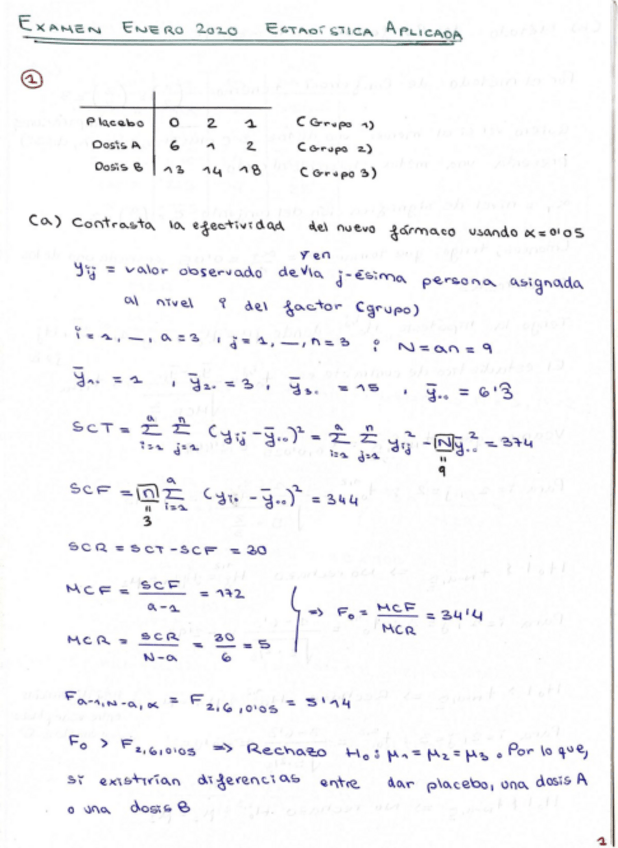 EXAMEN ENERO 2020 ESTADÍSTICA APLICADA
①
Placebo | 0 2 1 (Grupo 1)
Dosis A | 6 1 2 (Grupo 2)
Dosis B | 13 14 18 (Grupo 3)
(a) Contrasta la efectividad del nuevo fármaco usando α=0'05
y en
yij = valor observado de la j-ésima persona asignada
al nivel i del factor (grupo)
i=1, —, a=3 , j=1, —, n=3 ; N=an=9
ȳ1. = 1 , ȳ2. = 3 , ȳ3. = 15 , ȳ.. = 6'3̂
SCT = Σ(i=1, a) Σ(j=1, n) (yij - ȳ..)² = Σ(i=1, a) Σ(j=1, n) yij² - N ȳ..² = 374
" 9
SCF = n Σ(i=1, a) (ȳi. - ȳ..)² = 344
" 3
SCR = SCT - SCF = 30
MCF = SCF / a-1 = 172
⇒ F0 = MCF / MCR = 34'4
MCR = SCR / N-a = 30 / 6 = 5
Fa-1,N-a,α = F2,6,0'05 = 5'14
F0 > F2,6,0'05 ⇒ Rechazo H0: μ1 = μ2 = μ3. Por lo que,
si existirían diferencias entre dar placebo, una dosis A
o una dosis B
1